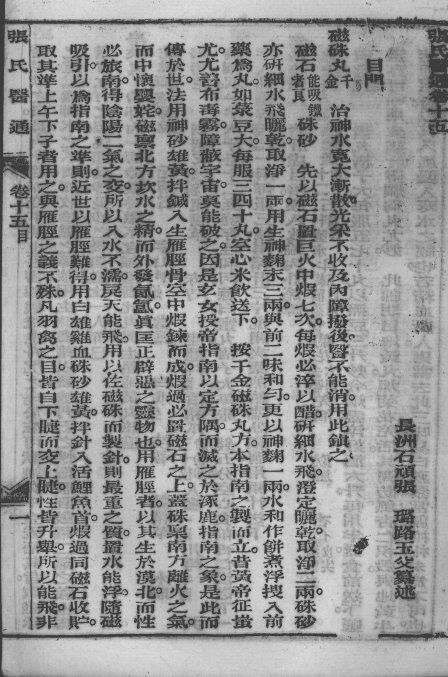 張氏醫通卷十五
長洲石頑張 璐路玉父纂述
目門
磁硃丸千金 治神水寬大漸散光采不收及內障撥後瞖不能消用此鎮之
磁石能吸鐵者良 硃砂 先以磁石置巨火中煆七次每煆必淬以醋研細水飛澄定曬乾取淨二兩硃砂
亦研細水飛曬乾取淨一兩用生神麴末三兩與前二味和勻更以神麴一兩水和作餅煮浮搜入前
藥為丸如菉豆大每服三四十丸空心米飲送下 按千金磁硃丸方本指南之製而立昔黃帝征蚩
尤尤善布毒霧障蔽宇宙莫能破之因是玄女授帝指南以定方隅而滅之於涿鹿指南之象是此而
傳於世法用神砂雄黃拌鍼入生雁脛骨空中煆鍊而成煆過必置磁石之上蓋硃稟南方離火之氣
而中懷嬰姹磁稟北方坎水之精而外發氤氳眞匡正辟惡之靈物也用雁脛者以其生於漠北而性
必旅南得陰陽二氣之交所以入水不濡戾天能飛用以佐磁硃而製針則最重之質置水能浮隨磁
吸引以爲指南之準則近世以雁脛難得用白雄雞血硃砂雄黃拌針入活鯉魚首煆過同磁石收貯
取其準上午下子者用之與雁脛之義不殊凡羽禽之目皆自下睫而交上睫性皆升舉所以能飛非
張氏醫通 卷十五目 一